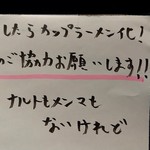 したらカップラーメン化!
のご協力お願いします!!
ナルトもメンマも
ないけれど